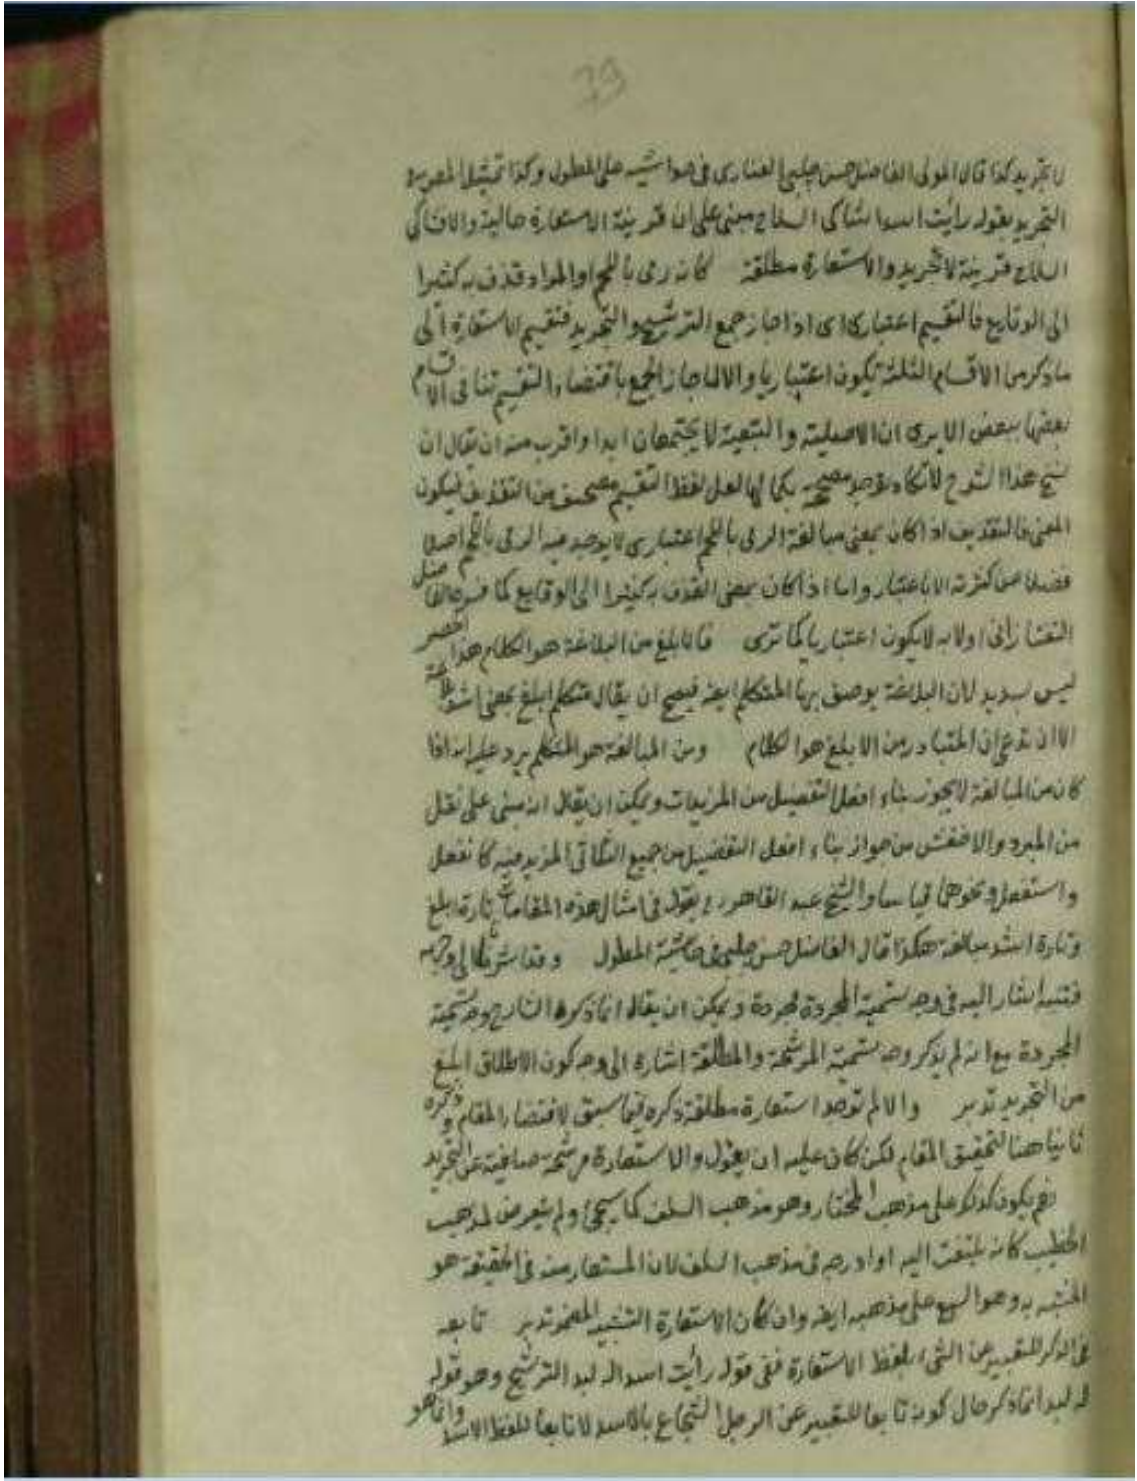 39
لا تجريد كذا قال المولى الفاضل حسن چلبي الفناري في حواشيه على المطول وكذا تمثيل المص
التجريد بقوله رأيت اسدا شاكي السلاح مبنى على ان قرينة الاستعارة حالية والا فشاكي
السلاح قرينة لا تجريد والاستعارة مطلقة كانه رمى باللحم او المراد قذف به كثيرا
الى الوقايع فالتقسيم اعتباري اى اذا جاز جمع الترشيح والتجريد فتقسيم الاستعارة الى
ما ذكر من الاقسام الثلثة يكون اعتباريا والا لما جاز الجمع باقتضاء التقسيم تنافى الاقسام
بعضها ببعض الا يرى ان الاصلية والتبعية لا يجتمعان ابدا واقرب منه ان يقال ان
نسخ هذا الشرح لا تكاد توجد مصححة بكمالها لعل لفظ التقسيم مصحف من التقذيف فيكون
المعنى فالتقذيف اذا كان بمعنى مبالغة الرمى باللحم اعتبارى لا يوجد فيه الرمى باللحم اصلا
فضلا عن كثرته الا باعتبار واما اذا كان بمعنى القذف به كثيرا الى الوقايع كما فسر
التفتازانى اولا به لا يكون اعتباريا كما ترى فالابلغ من البلاغة هو الكلام هذا الحصر
ليس بسديد لان البلاغة يوصف بها المتكلم ايضا فيصح ان يقال متكلم ابلغ بمعنى اشد بلاغة
الا ان تدعى ان المتبادر من الابلغ هو الكلام ومن المبالغة هو المتكلم يرد عليه انه اذا
كان من المبالغة لا يجوز بناء افعل التفضيل من المزيدات ويمكن ان يقال انه مبنى على نقل
من المبرد والاخفش من جواز بناء افعل التفضيل من جميع الثلاثى المزيد فيه كانفعل
واستفعل ونحوهما قياسا والشيخ عبد القاهر يقول فى امثال هذه المقامات تارة ابلغ
وتارة اشد مبالغة هكذا قال الفاضل حسن چلبى فى حاشية المطول وقد اشرنا الى وجهه
فتنبه اشار اليه فى وجه تسمية المجردة مجردة ويمكن ان يقال انما ذكره الشارح وجه تسمية
المجردة مع انه لم يذكر وجه تسمية المرشحة والمطلقة اشارة الى وجه كون الاطلاق ابلغ
من التجريد تدبر والا لم توجد استعارة مطلقة ذكره فيما سبق لاقتضاء المقام وذكره
ثانيا هنا لتحقيق المقام لكن كان عليه ان يقول والا استعارة مرشحة صافية عن التجريد
نعم يكون كذلك على مذهب المختار وهو مذهب السلف كما سيجئ ولم يتعرض لمذهب
الخطيب كانه يلتفت اليه او ادرجه فى مذهب السلف لان المستعار منه فى الحقيقة هو
المشبه به وهو السبع على مذهبه ايضا وان كان الاستعارة التشبيه المضمر تدبر تابعه
فى الذكر للتعبير عن الشئ بلفظ الاستعارة ففى قوله رأيت اسدا له لبد الترشيح وهو قوله
له لبد انما ذكر حال كونه تابعا للتعبير عن الرجل الشجاع بالاسد لا تابعا للفظ الاسد وانما هو